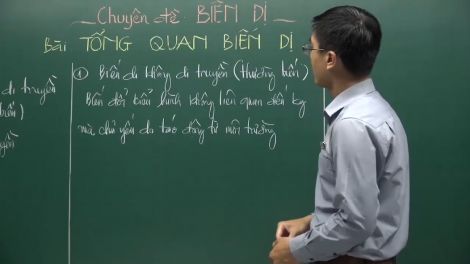 Chuyên đề BIẾN DỊ
Bài TỔNG QUAN BIẾN DỊ
① Biến dị không di truyền (thường biến)
Biến đổi kiểu hình không liên quan đến kg
mà chủ yếu do tác động từ môi trường
di truyền
biến)